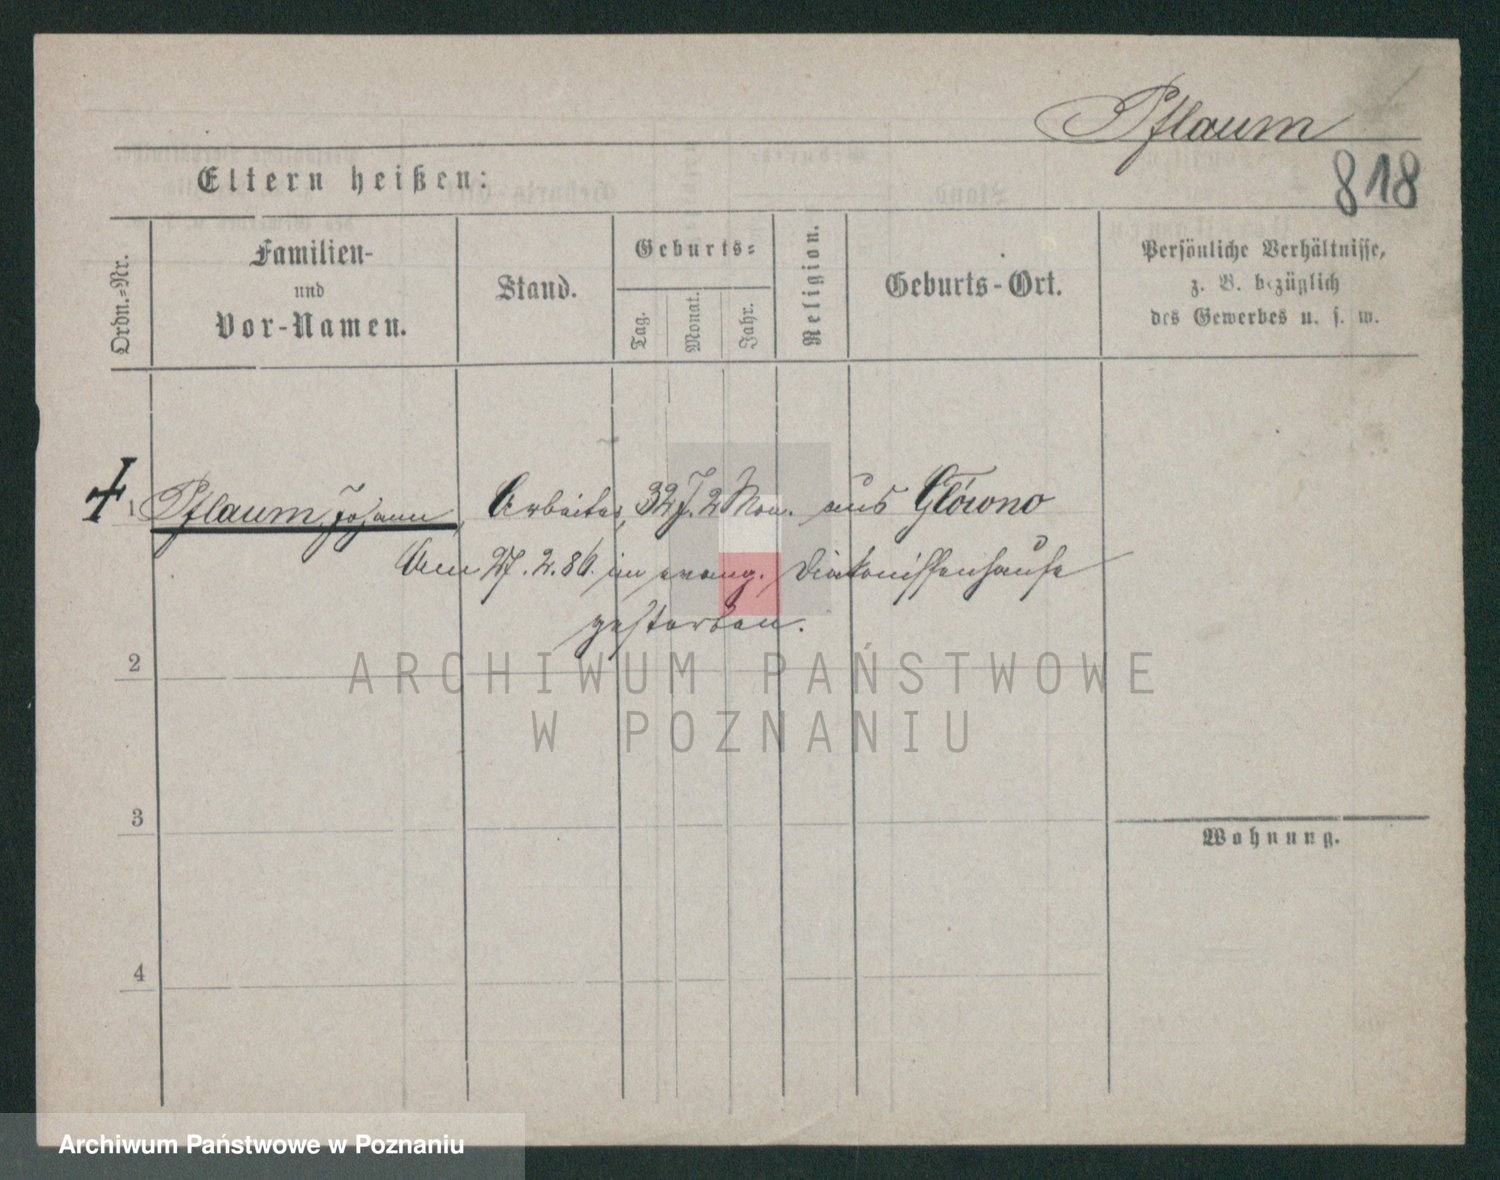 Pflaum
818
Eltern heißen:
Ordn.-Nr.
Familien-
und
Vor-Namen.
Stand.
Geburts-
Tag.
Monat.
Jahr.
Religion.
Geburts-Ort.
Persönliche Verhältnisse,
z. B. bezüglich
des Gewerbes u. s. w.
1 Pflaum, Johann, Arbeiter, 32 J. 2 Mon. aus Glówno
Am 27.2.86. im evang. Diakonissenhause
gestorben.
2
ARCHIWUM PAŃSTWOWE
W POZNANIU
3
Wohnung.
4
Archiwum Państwowe w Poznaniu